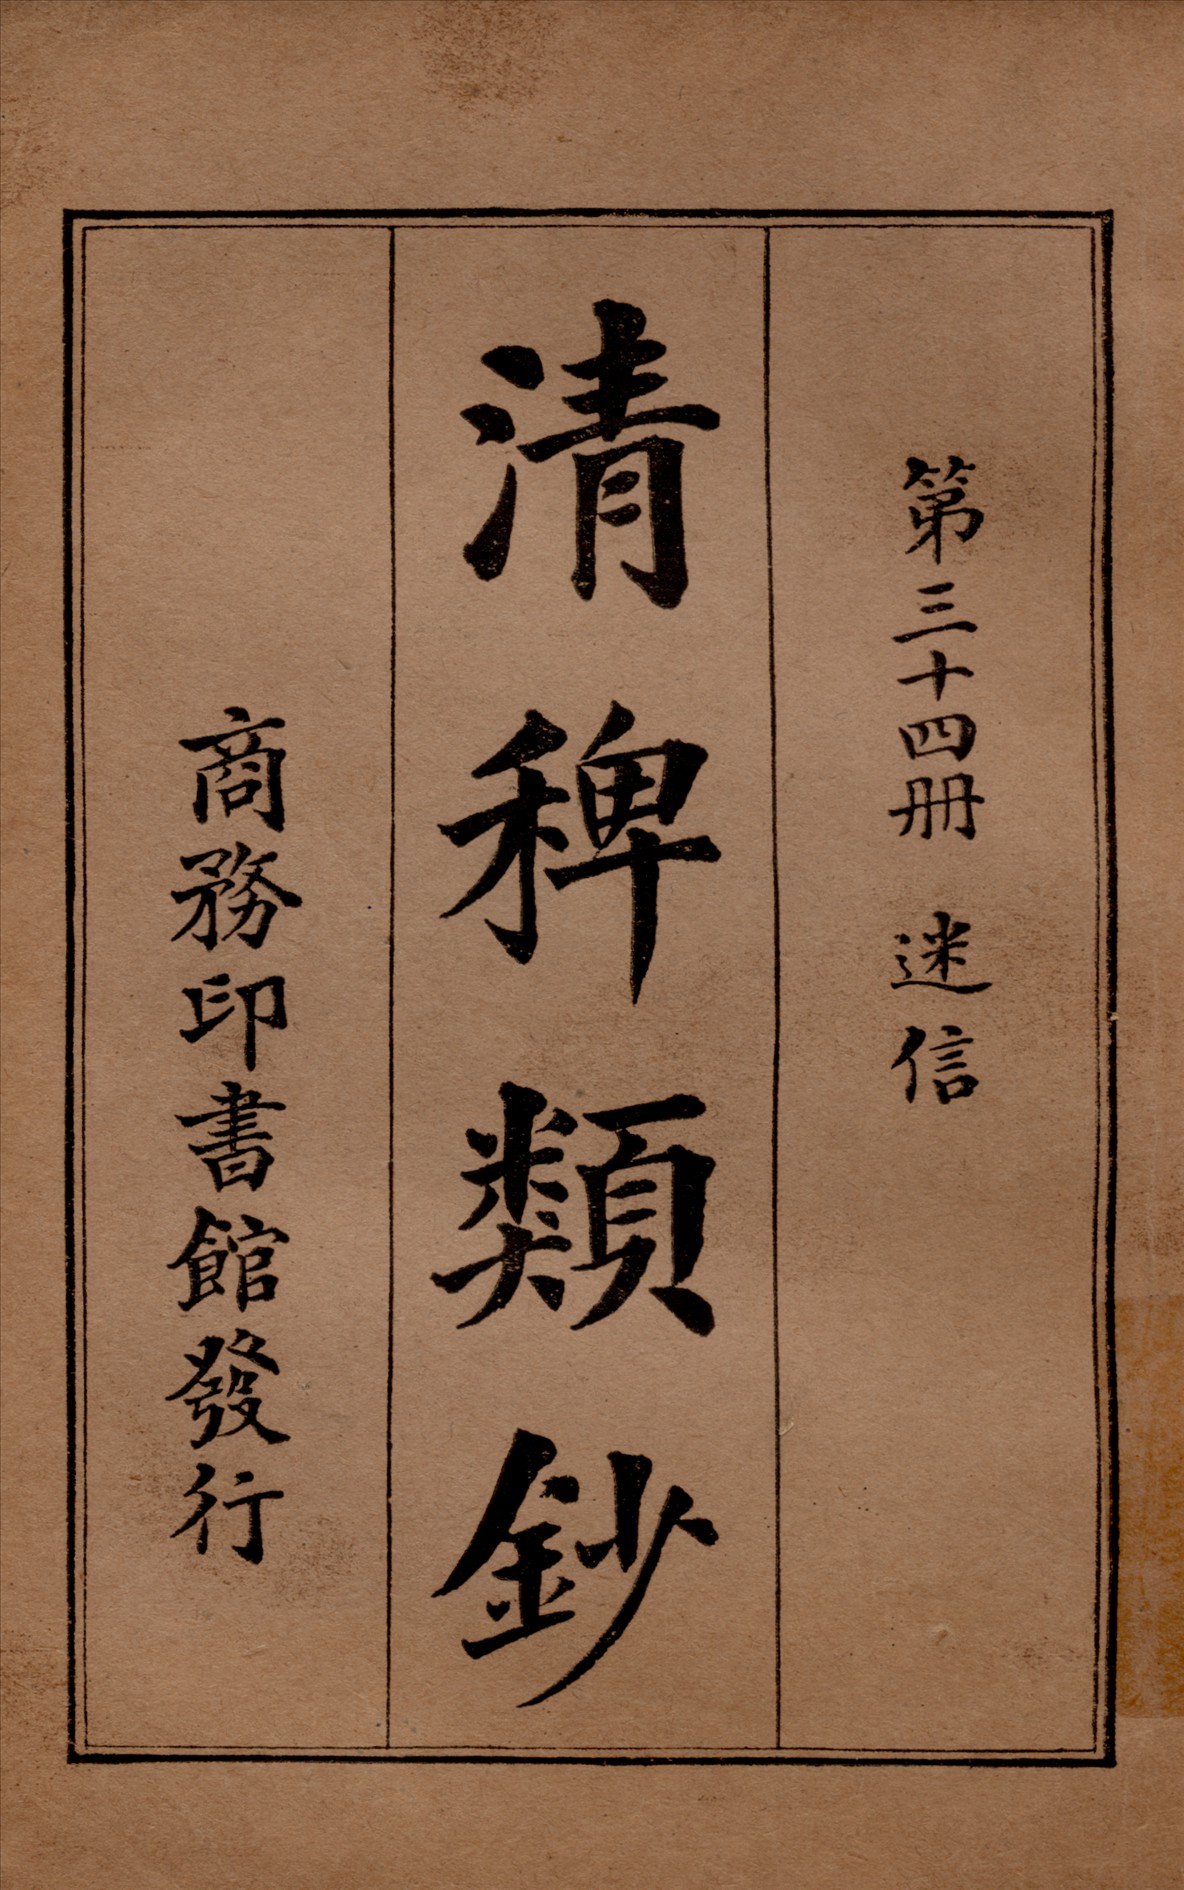 第三十四册 迷信
清稗類鈔
商務印書館發行